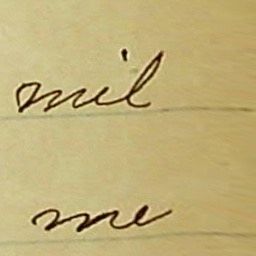 mil
me